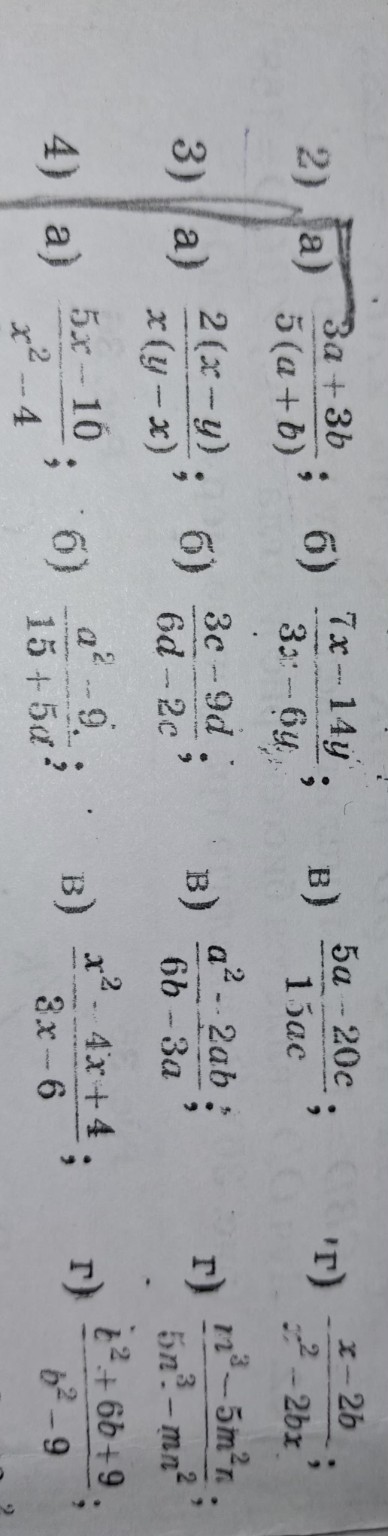 2) а) (3a + 3b)/(5(a + b)); б) (7x - 14y)/(3x - 6y); в) (5a - 20c)/(15ac); г) (x - 2b)/(x² - 2bx);
3) а) (2(x - y))/(x(y - x)); б) (3c - 9d)/(6d - 2c); в) (a² - 2ab)/(6b - 3a); г) (m³ - 5m²n)/(5n³ - mn²);
4) а) (5x - 10)/(x² - 4); б) (a² - 9)/(15 + 5a); в) (x² - 4x + 4)/(3x - 6); г) (b² + 6b + 9)/(b² - 9);